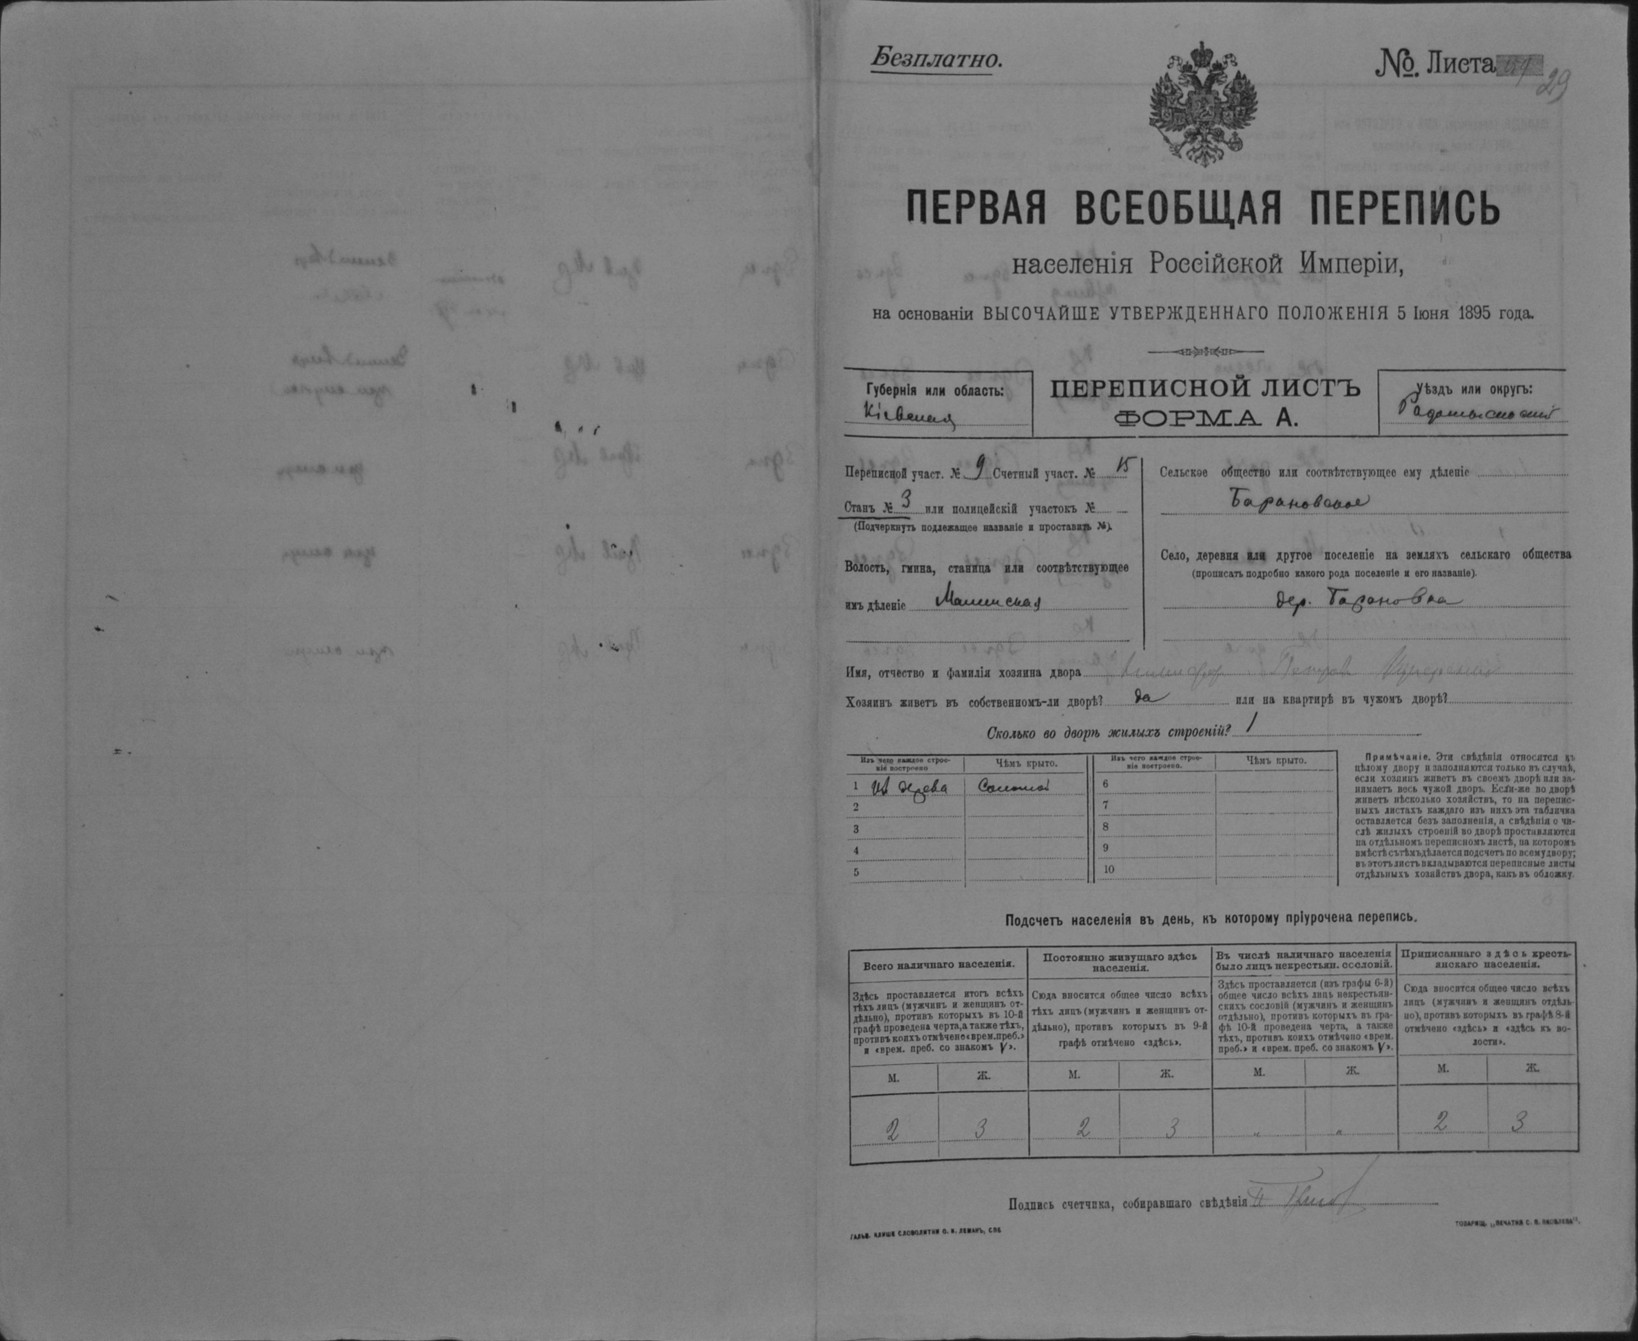 Безплатно.
№. Листа 29
ПЕРВАЯ ВСЕОБЩАЯ ПЕРЕПИСЬ
населенія Россійской Имперіи,
на основаніи ВЫСОЧАЙШЕ УТВЕРЖДЕННАГО ПОЛОЖЕНІЯ 5 Іюня 1895 года.
Губернія или область:
Кіевская
ПЕРЕПИСНОЙ ЛИСТЪ
ФОРМА А.
Уѣздъ или округъ:
Радомысльскій
Переписной участ. № 9 Счетный участ. № 15
Станъ № 3 или полицейскій участокъ № —
(Подчеркнуть подлежащее названіе и проставить №).
Волость, гмина, станица или соотвѣтствующее
имъ дѣленіе Малинская
Сельское общество или соотвѣтствующее ему дѣленіе
Барановское
Село, деревня или другое поселеніе на земляхъ сельскаго общества
(прописать подробно какого рода поселеніе и его названіе).
дер. Барановка
Имя, отчество и фамилія хозяина двора
Хозяинъ живетъ въ собственномъ-ли дворѣ? да или на квартирѣ въ чужомъ дворѣ?
Сколько во дворѣ жилыхъ строеній? 1
Изъ чего каждое строе-
ніе построено
Чѣмъ крыто.
Изъ чего каждое строе-
ніе построено.
Чѣмъ крыто.
1 Из дерева Соломой
2
3
4
5
6
7
8
9
10
Примѣчаніе. Эти свѣдѣнія относятся къ
цѣлому двору и заполняются только въ случаѣ,
если хозяинъ живетъ въ своемъ дворѣ или за-
нимаетъ весь чужой дворъ. Если-же во дворѣ
живетъ нѣсколько хозяйствъ, то на перепис-
ныхъ листахъ каждаго изъ нихъ эта табличка
оставляется безъ заполненія, а свѣдѣнія о чи-
слѣ жилыхъ строеній во дворѣ проставляются
на отдѣльномъ переписномъ листѣ, на которомъ
вмѣстѣ съ тѣмъ дѣлается подсчетъ по всему двору;
въ этотъ листъ вкладываются переписные листы
отдѣльныхъ хозяйствъ двора, какъ въ обложку.
Подсчетъ населенія въ день, къ которому пріурочена перепись.
Всего наличнаго населенія.
Здѣсь проставляется итогъ всѣхъ
тѣхъ лицъ (мужчинъ и женщинъ от-
дѣльно), противъ которыхъ въ 10-й
графѣ проведена черта, а также тѣхъ,
противъ коихъ отмѣчено «врем. преб.»
и «врем. преб. со знакомъ V».
М. Ж.
2 3
Постоянно живущаго здѣсь
населенія.
Сюда вносится общее число всѣхъ
тѣхъ лицъ (мужчинъ и женщинъ от-
дѣльно), противъ которыхъ въ 9-й
графѣ отмѣчено «здѣсь».
М. Ж.
2 3
Въ числѣ наличнаго населенія
было лицъ некрестьян. сословій.
Здѣсь проставляется (изъ графы 6-й)
общее число всѣхъ лицъ некрестьян-
скихъ сословій (мужчинъ и женщинъ
отдѣльно), противъ которыхъ въ гра-
фѣ 10-й проведена черта, а также
тѣхъ, противъ коихъ отмѣчено «врем.
преб.» и «врем. преб. со знакомъ V».
М. Ж.
" "
Приписаннаго здѣсь кресть-
янскаго населенія.
Сюда вносится общее число всѣхъ
лицъ (мужчинъ и женщинъ отдѣль-
но), противъ которыхъ въ графѣ 8-й
отмѣчено «здѣсь» и «здѣсь въ во-
лости».
М. Ж.
2 3
Подпись счетчика, собиравшаго свѣдѣнія
ГАЛЬВ. КЛИШЕ СЛОВОЛИТНИ О. И. ЛЕМАНЪ, СПБ
ТОВАРИЩ. „ПЕЧАТНЯ С. П. ЯКОВЛЕВА“.